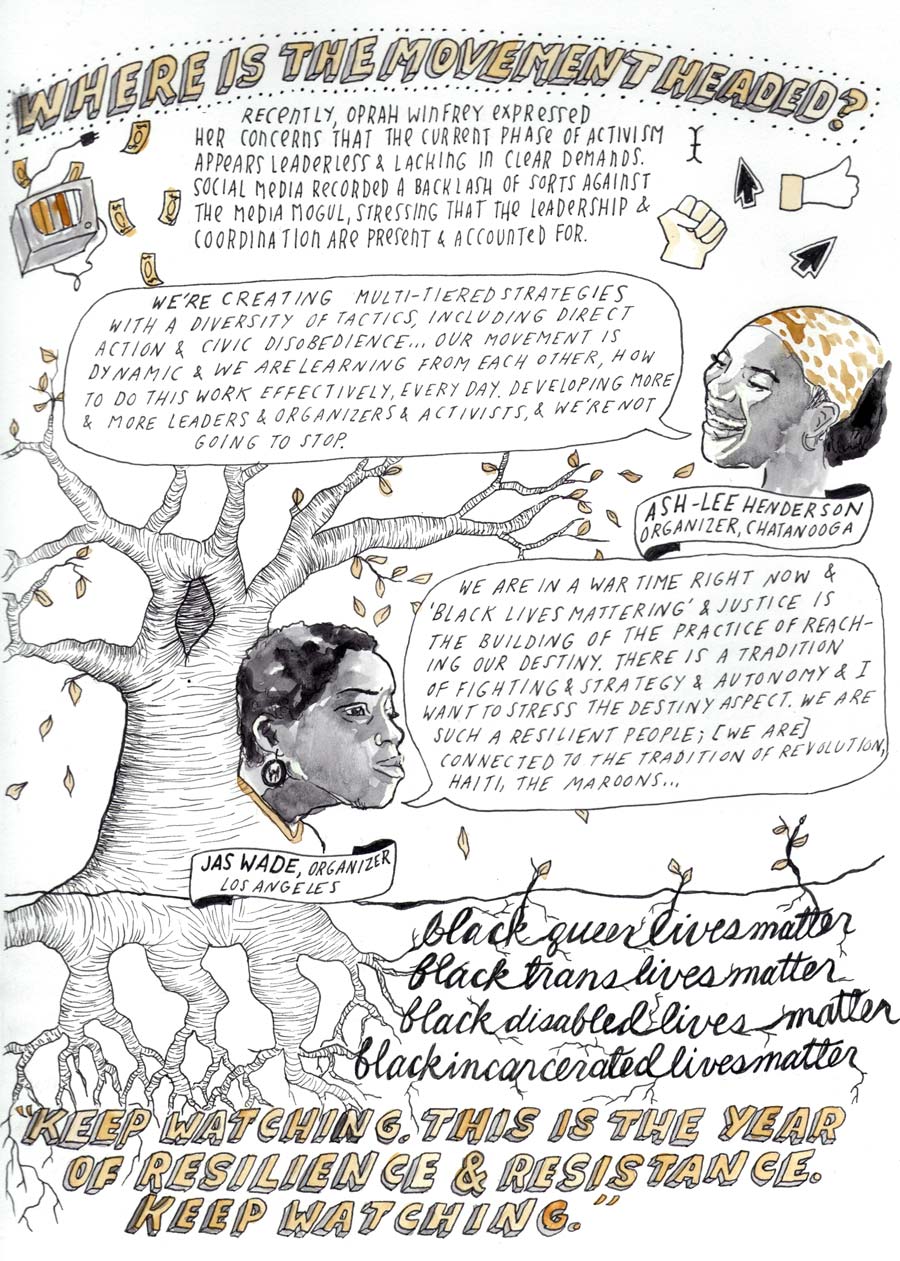 WHERE IS THE MOVEMENT HEADED?
RECENTLY, OPRAH WINFREY EXPRESSED
HER CONCERNS THAT THE CURRENT PHASE OF ACTIVISM
APPEARS LEADERLESS & LACKING IN CLEAR DEMANDS.
SOCIAL MEDIA RECORDED A BACKLASH OF SORTS AGAINST
THE MEDIA MOGUL, STRESSING THAT THE LEADERSHIP &
COORDINATION ARE PRESENT & ACCOUNTED FOR.
WE'RE CREATING MULTI-TIERED STRATEGIES
WITH A DIVERSITY OF TACTICS, INCLUDING DIRECT
ACTION & CIVIC DISOBEDIENCE... OUR MOVEMENT IS
DYNAMIC & WE ARE LEARNING FROM EACH OTHER, HOW
TO DO THIS WORK EFFECTIVELY, EVERY DAY. DEVELOPING MORE
& MORE LEADERS & ORGANIZERS & ACTIVISTS, & WE'RE NOT
GOING TO STOP.
ASH-LEE HENDERSON
ORGANIZER, CHATANOOGA
WE ARE IN A WAR TIME RIGHT NOW &
'BLACK LIVES MATTERING' & JUSTICE IS
THE BUILDING OF THE PRACTICE OF REACH-
ING OUR DESTINY. THERE IS A TRADITION
OF FIGHTING & STRATEGY & AUTONOMY & I
WANT TO STRESS THE DESTINY ASPECT. WE ARE
SUCH A RESILIENT PEOPLE; [WE ARE]
CONNECTED TO THE TRADITION OF REVOLUTION,
HAITI, THE MAROONS...
JAS WADE, ORGANIZER
LOS ANGELES
black queer lives matter
black trans lives matter
black disabled lives matter
black incarcerated lives matter
"KEEP WATCHING. THIS IS THE YEAR
OF RESILIENCE & RESISTANCE.
KEEP WATCHING."